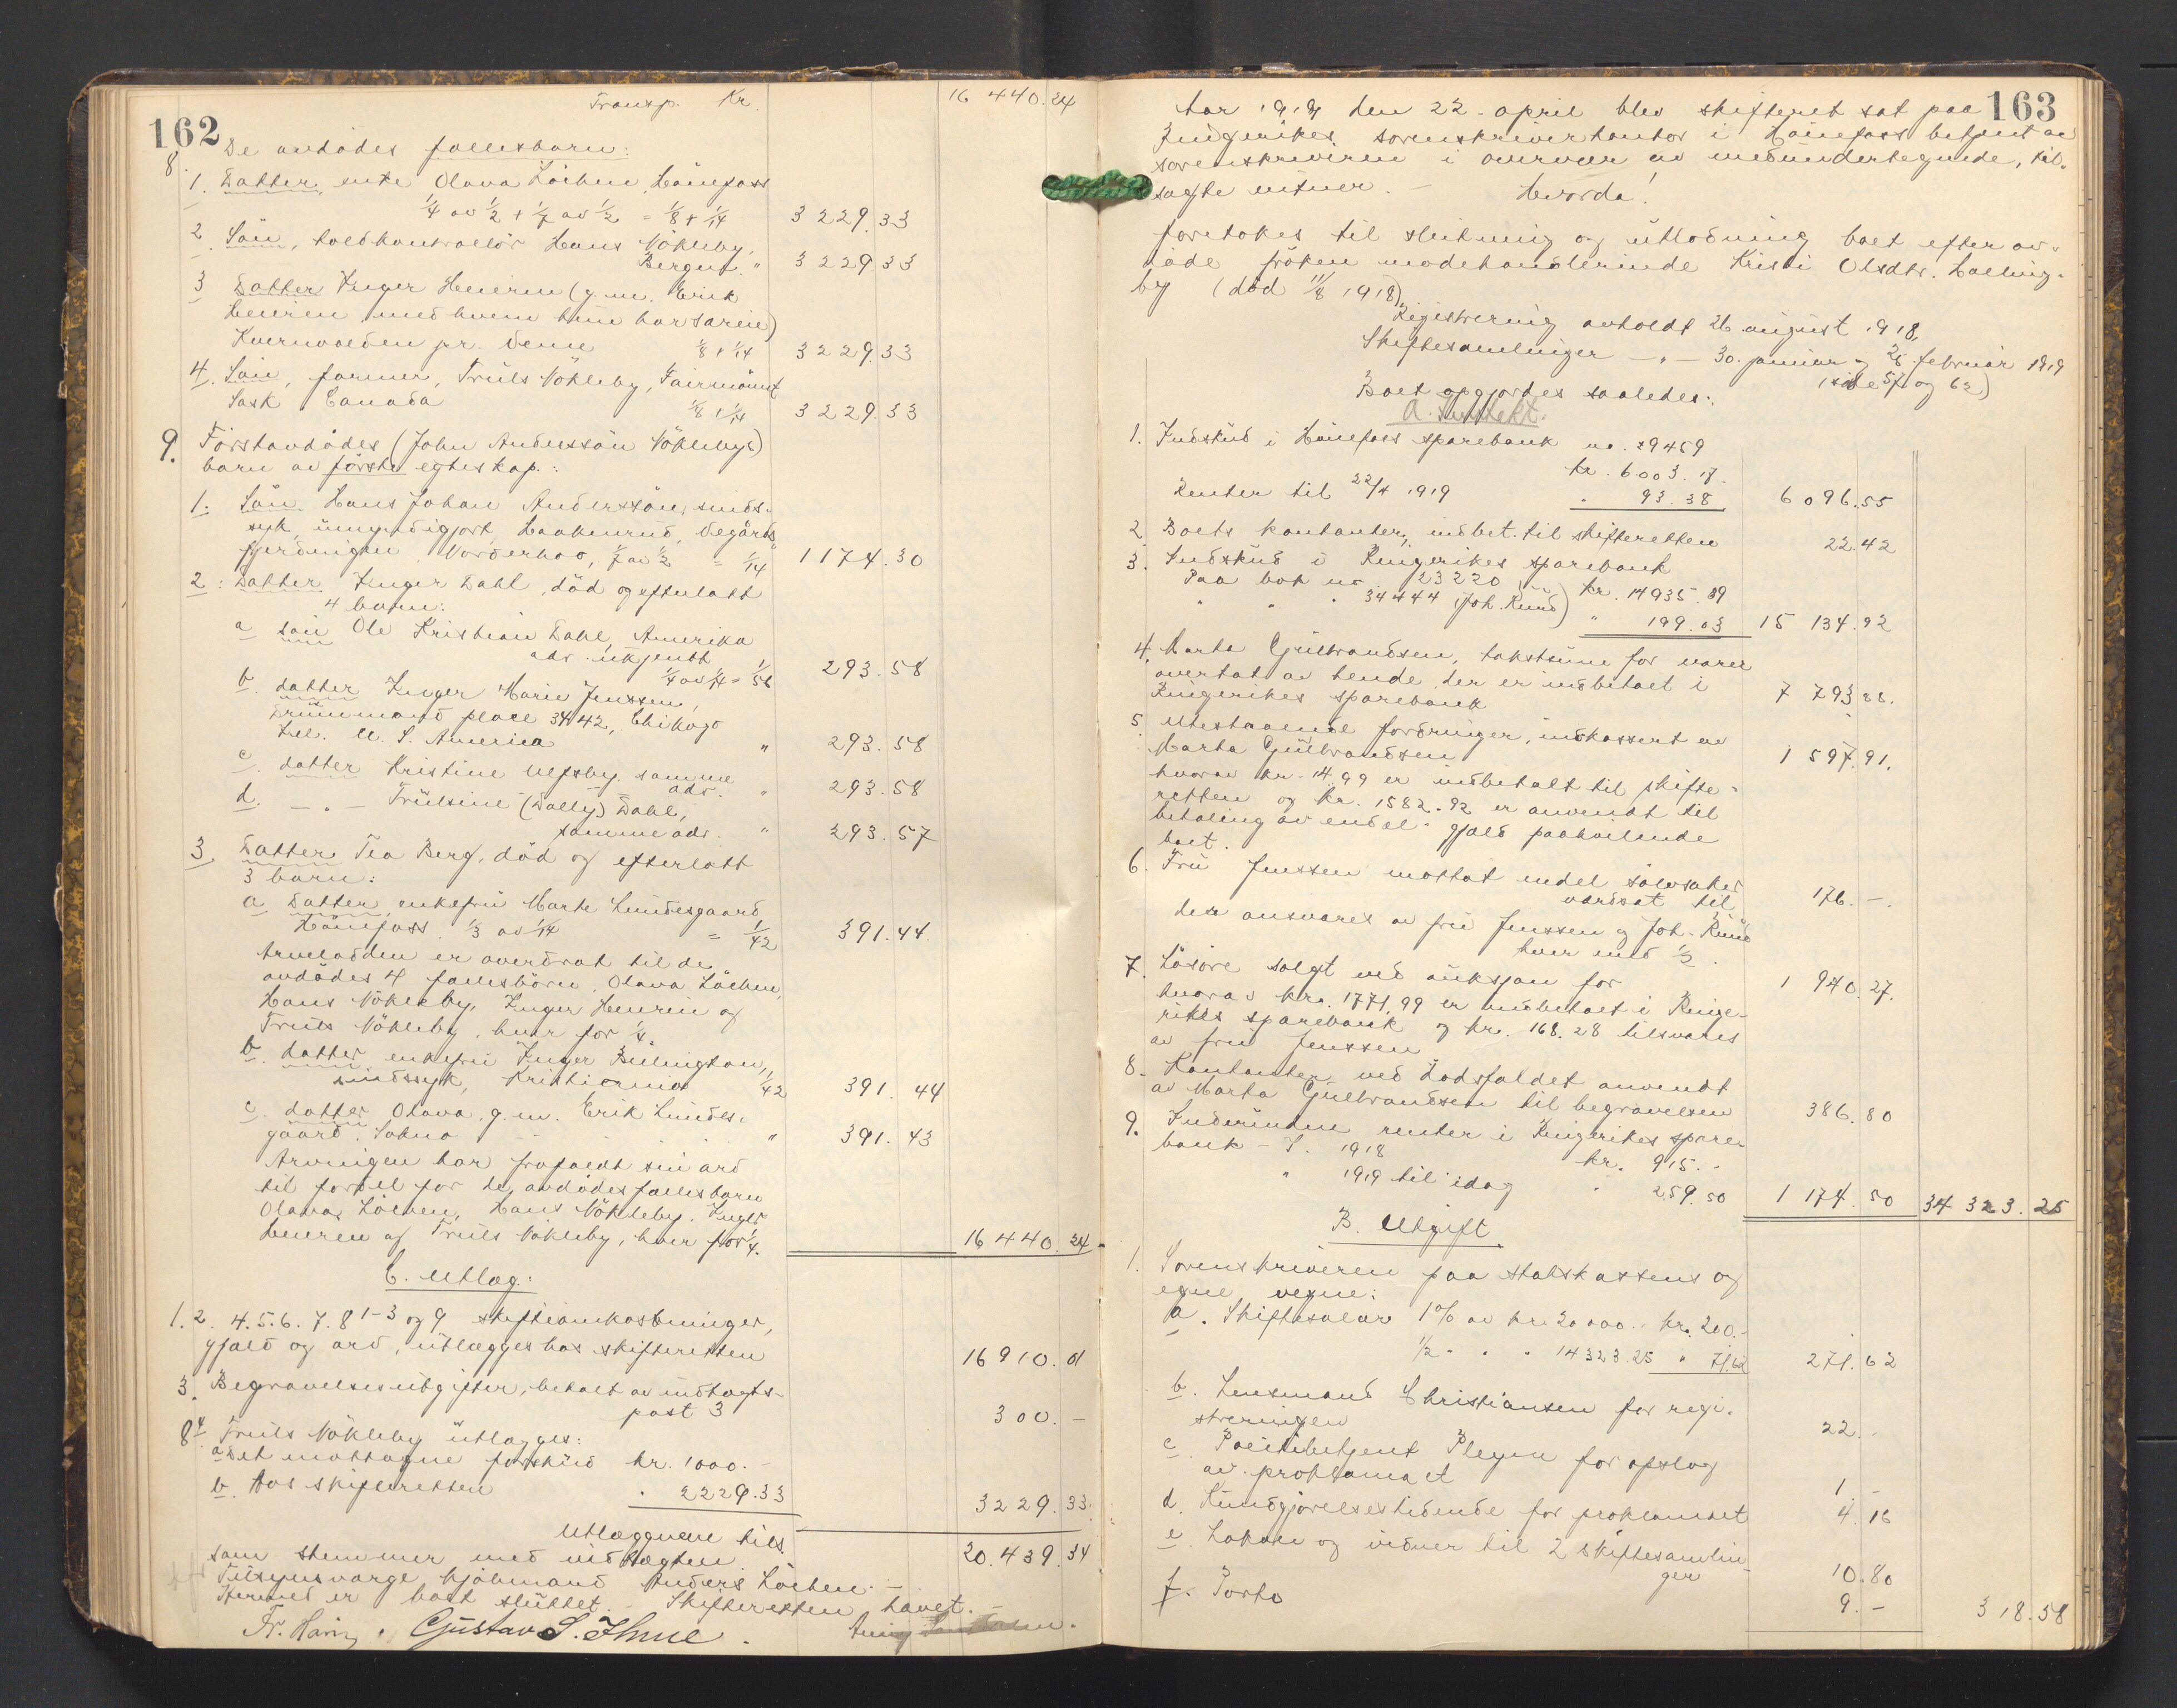 162
Transp. Kr. 16 440.24
8. De avdødes fællesbarn:
1. Datter, enke Olava Löchen, Hönefoss
1/4 av 1/2 + 1/7 av 1/2 = 1/8 + 1/14 3229.33
2. Sön, toldkontrollör Hans Nökleby,
Bergen. " 3229.33
3 Datter Inger Heieren (g.m. Erik
Heieren med hvem hun har særeie)
Kvernvolden pr. Veme 1/8 + 1/14 3229.33
4. Sön, farmer, Truls Nökleby, Fairmount
Sask. Canada 1/8 + 1/14 3229.33
9. Förstavdödes (John Anderssön Nöklebys)
barn av förste egteskap.:
1. Sön Hans Johan Anderssön, sinds-
syk, umyndigjort, Haakenrud, Vegårds
fjerdingen Norderhov, 1/7 av 1/2 = 1/14 1174.30
2: Datter Inger Dahl, död og efterlatt
4 barn:
a sön Ole Kristian Dahl, Amerika
adr. ukjendt 1/4 av 1/14 = 1/56 293.58
b. datter Inger Marie Jenssen,
Drummond place 3442, Chikago
Ill. U. S. America " 293.58
c. datter Kristine Ulfsby samme
adr. " 293.58
d. — " — Trulsine (Dolly) Dahl,
samme adr. " 293.57
3. Datter Tea Berg, död og efterlatt
3 barn:
a Datter, enkefru Marte Lundesgaard
Hönefoss 1/3 av 1/14 = 1/42 391.44.
Arvelodden er overdrat til de
avdödes 4 fællesbörn, Olava Löchen,
Hans Nökleby, Inger Heieren og
Truls Nökleby, hver for 1/4.
b. datter enkefru Inger
sindssyk, Kristiania 1/42 391.44
c. datter Olava, g.m. Erik Lundes-
gaard. Sokna " 391.43
Arvingen har frafaldt sin arv
til fordel for de avdödes fællesbarn
Olava Löchen, Hans Nökleby, Inger
Heieren og Truls Nökleby, hver for 1/4.
16 440.24
C. Utlæg:
1. 2. 4. 5. 6. 7. 8 1-3 og 9 skifteomkostninger,
gjæld og arv, utlægges hos skifteretten 16910.01
3. Begravelsesutgifter, betalt av indtægts-
post 3 300.—
8 4. Truls Nökleby utlægges:
a Det mottagne forskud kr. 1000.-
b. Hos skifteretten " 2229.33
3229.33.
Utlæggene tils. 20.439.34
som stemmer med indtægten
Tilsynsverge kjöbmand Anders Löchen. —
Hermed er boet sluttet. Skifteretten hævet. —
Fr. Haring. Gustav S. Ihme.
163
Aar 1919 den 22. april blev skifteret sat paa
Ringerikes sorenskriverkontor i Hönefoss betjent av
sorenskriveren i overvær av medundertegnede, til-
sagte vidner. — Hvorda!
foretokes til slutning og utlodning boet efter av-
döde fröken modehandlerinde Kristi Olsdtr. Halling-
by (död 11/8 1918)
Registrering avholdt 26 august 1918,
Skiftesamlinger — " — 30. januar og 26. februar 1919
(side 57 og 62)
Boet opgjordes saaledes:
A. Indtekt.
1. Indskud i Hönefoss sparebank no. 29459
kr. 6003.17.
Renter til 22/4 1919 " 93.38 6096.55
2. Boets kontanter, indbet. til skifteretten 22.42
3. Indskud i Ringerikes sparebank
Paa bok no. 23220 kr. 14935.89
" " " 34444 (Joh. Ruud) " 199.03 15 134.92
4. Marta Gulbrandsen, takstsum for varer
overtat av hende, der er indbetalt i
Ringerikes sparebank 7 793.88.
5. Utestaaende fordringer, indkassert av
Marta Gulbrandsen 1 597.91.
hvorav kr. 14.99 er indbetalt til skifte-
retten og kr. 1582.92 er anvendt til
betaling av endel gjæld paahvilende
boet.
6. Fru Jenssen mottat endel sölvsaker
værdsat til 176.—.
der ansvares av fru Jenssen og Joh. Ruud
hver med 1/2.
7. Lösöre solgt ved auksjon for 1 940.27.
hvorav kr. 1771.99 er indbetalt i Ringe-
rikes sparebank og kr. 168.28 tilsvares
av fru Jenssen
8. Kontanter ved dødsfaldet anvendt
av Marta Gulbrandsen til begravelsen 386.80
9. Inderindne renter i Ringerikes spare-
bank - I. 1918 kr. 915.-
" 1919 til idag " 259.50 1 174.50 34 323.25
B. Utgift.
1. Sorenskriveren paa statskassens og
egne vegne:
a. Skiftesalær 1% av kr. 20000.- kr. 200.-
1/2 " " " 14323.25 " 71.62 271.62
b. Lensmand Christiansen for regi-
streringen 22.-
c. Politibetjent Plegen for opslag
av proklamaet 1.-
d. Kundgjörelsestidende for proklamaet 4.16
e. Lokale og vidner til 2 skiftesamlin-
ger 10.80
f. Porto 9.- 318.58